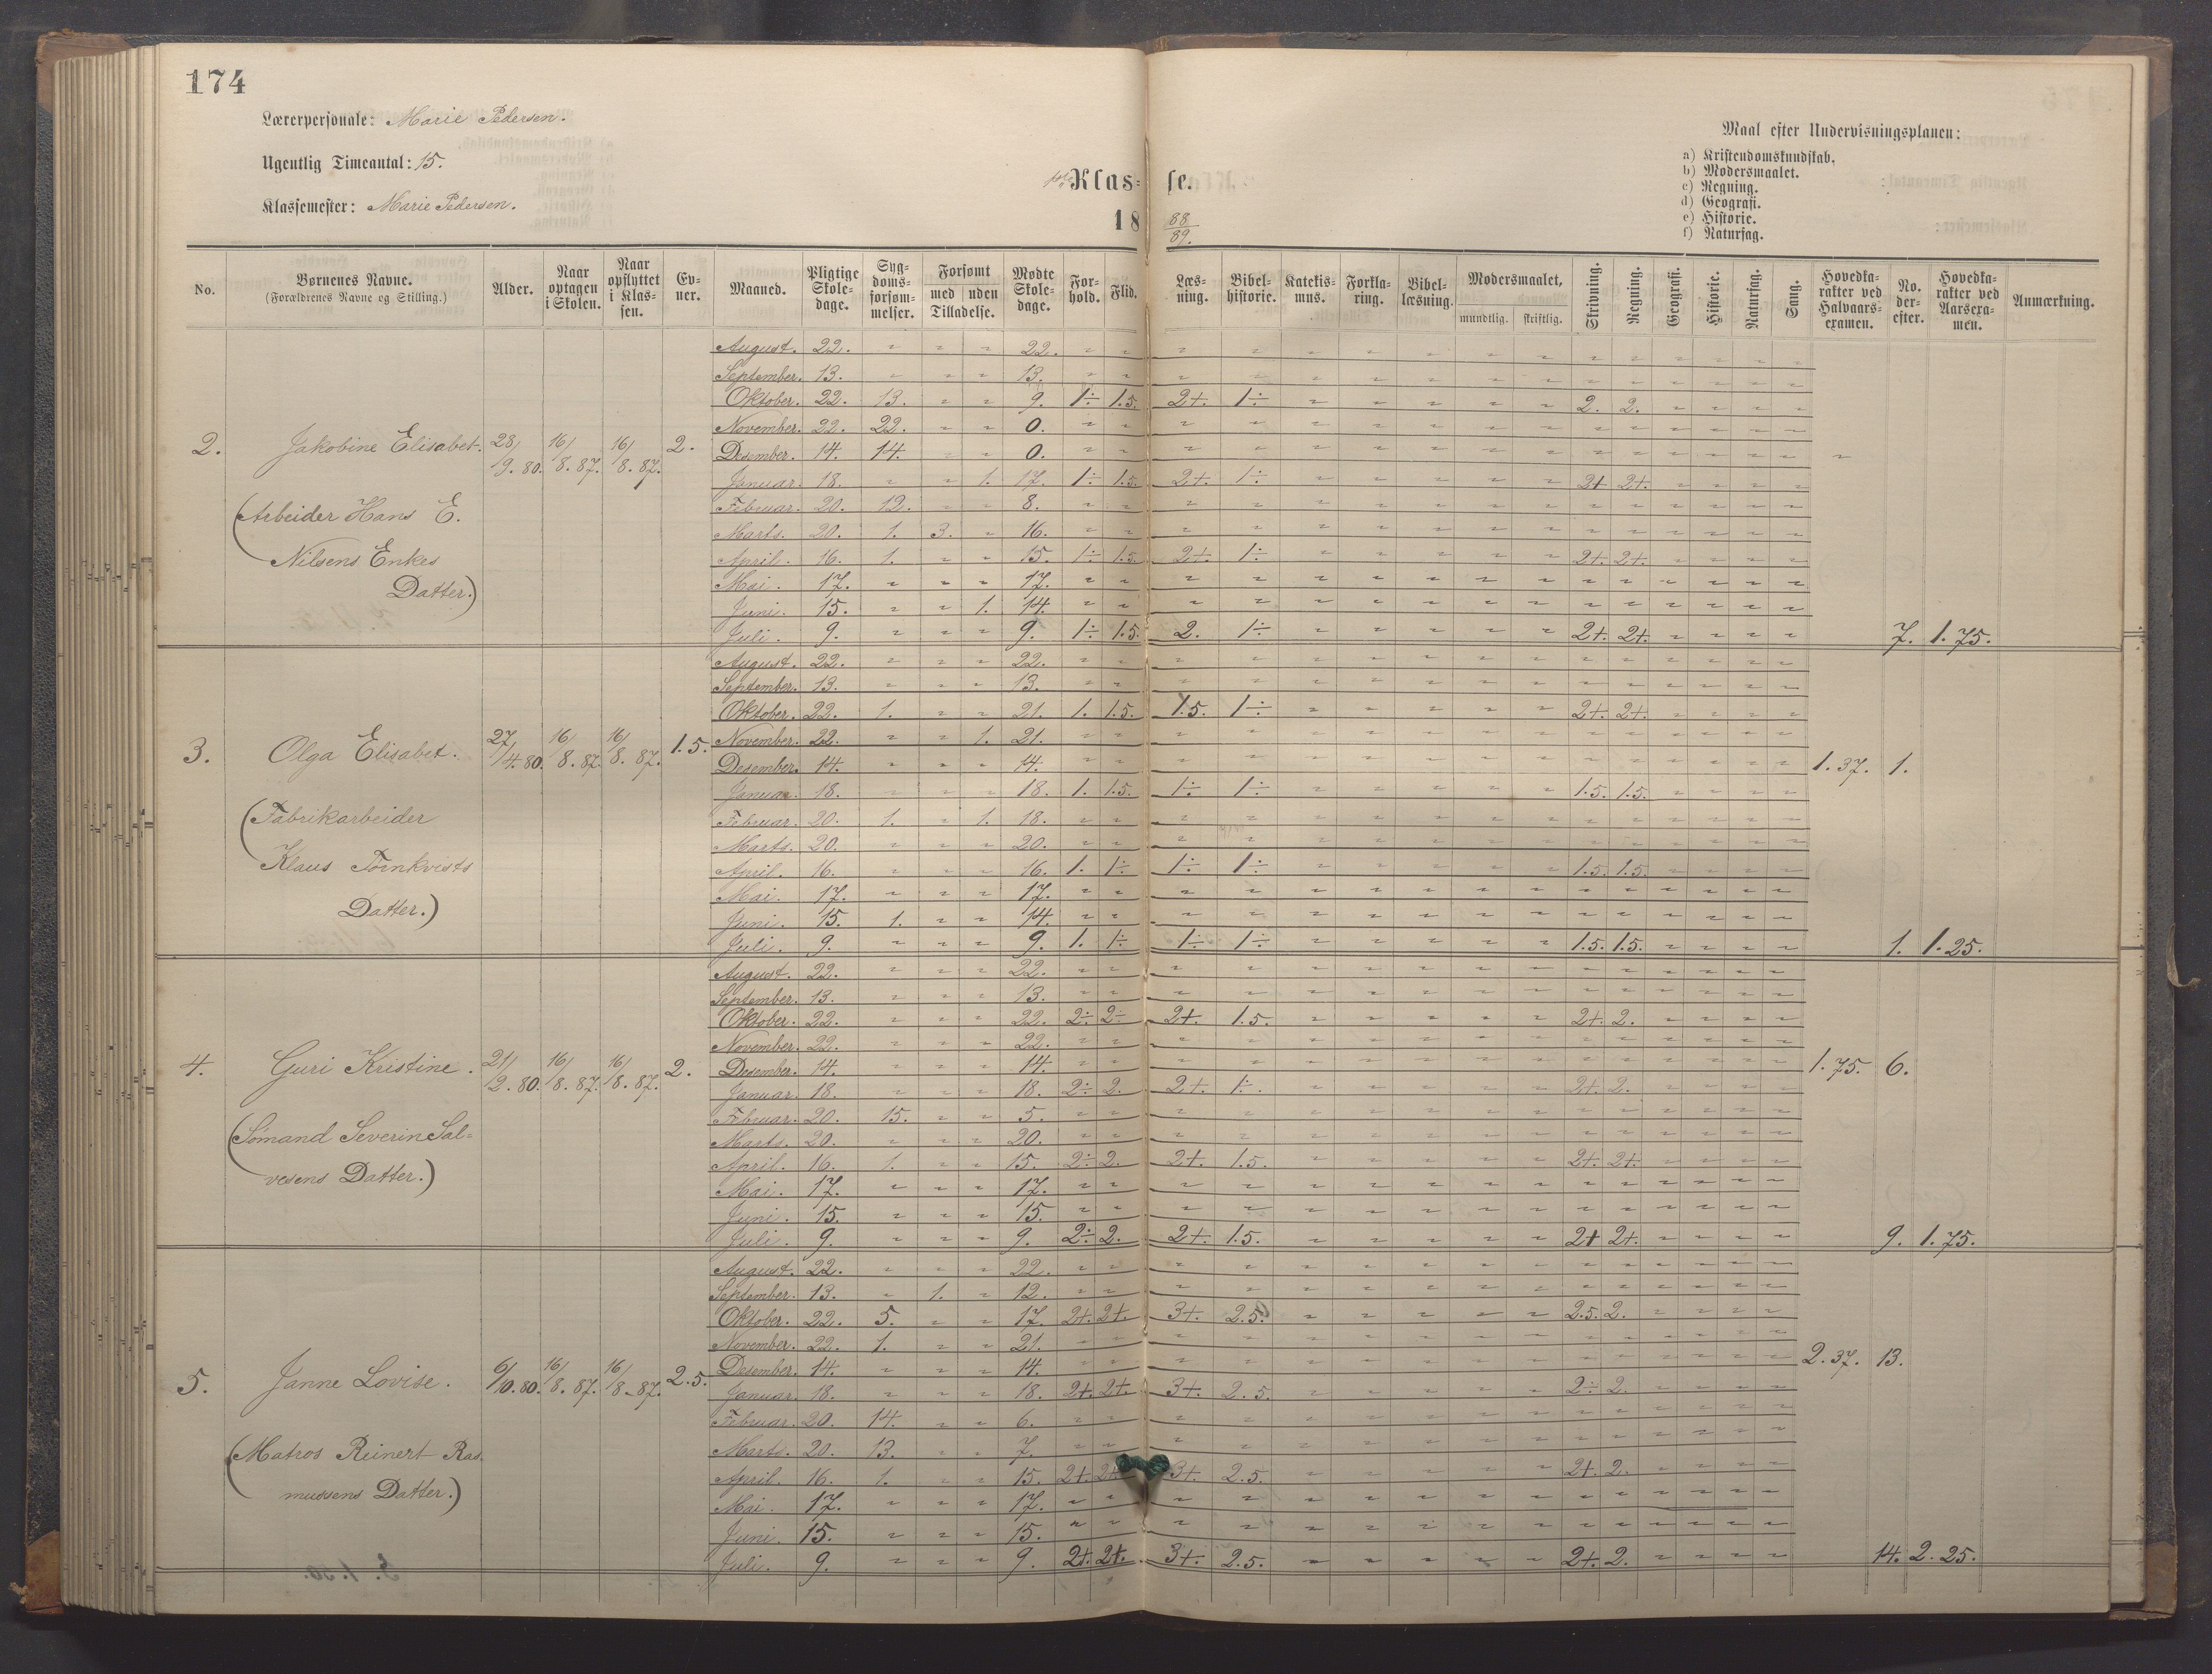 174
Lærerpersonale: Marie Pedersen.
Ugentlig Timeantal: 15.
Klassemester: Marie Pedersen.
Klas= se.
18 88/89.
Maal efter Undervisningsplanen:
a) Kristendomskundskab.
b) Modersmaalet.
c) Regning.
d) Geografi.
e) Historie.
f) Naturfag.
No. | Børnenes Navne. (Forældrenes Navne og Stilling.) | Alder. | Naar optagen i Skolen. | Naar opflyttet i Klassen. | Evner. | Maaned. | Pligtige Skoledage. | Sygdomsforsømmelser. | Forsømt med uden Tilladelse. | Mødte Skoledage. | Forhold. | Flid. | Læsning. | Bibelhistorie. | Katekismus. | Forklaring. | Bibellæsning. | Modersmaalet, mundtlig. skriftlig. | Skrivning. | Regning. | Geografi. | Historie. | Naturfag. | Sang. | Hovedkarakter ved Halvaarsexamen. | No. derefter. | Hovedkarakter ved Aarsexamen. | Anmærkning.
2. Jakobine Elisabet. 28/9. 80. 16/8. 87. 16/8. 87. 2.
(Arbeider Hans E.
Nilsens Enkes
Datter.)
August. 22. " " " 22. " "
September. 13. " " " 13. " "
Oktober. 22. 13. " " 9. 1÷ 1.5. 2+. 1÷ " " " " " 2. 2. " " " "
November. 22. 22. " " 0. " "
Desember. 14. 14. " " 0. " "
Januar. 18. " " 1. 17. 1÷ 1.5. 2+. 1÷ " " " " " 2+ 2+. " " " "
Februar. 20. 12. " " 8. " "
Marts. 20. 1. 3. " 16. " "
April. 16. 1. " " 15. 1÷ 1.5. 2+. 1÷ " " " " " 2+. 2+. " " " "
Mai. 17. " " " 17. " "
Juni. 15. " " 1. 14. " "
Juli. 9. " " " 9. 1÷ 1.5. 2. 1÷ " " " " " 2+. 2+. " " " " 7. 1.75.
3. Olga Elisabet. 27/4. 80. 16/8. 87. 16/8. 87. 1.5.
(Fabrikarbeider
Klaus Törnkvists
Datter.)
August. 22. " " " 22. " "
September. 13. " " " 13. " "
Oktober. 22. 1. " " 21. 1. 1.5. 1.5. 1÷ " " " " " 2+. 2+. " " " "
November. 22. " " 1. 21. " "
Desember. 14. " " " 14. " " 1.37. 1.
Januar. 18. " " " 18. 1. 1.5. 1÷ 1÷ " " " " " 1.5. 1.5. " " " "
Februar. 20. 1. " 1. 18. " "
Marts. 20. " " " 20. " "
April. 16. " " " 16. 1. 1÷ 1÷ 1÷ " " " " " 1.5. 1.5. " " " "
Mai. 17. " " " 17. " "
Juni. 15. 1. " " 14. " "
Juli. 9. " " " 9. 1. 1÷ 1÷ 1÷ " " " " " 1.5. 1.5. " " " " 1. 1.25.
4. Guri Kristine. 21/2. 80. 16/8. 87. 16/8. 87. 2.
(Sömand Severin Sal=
vesens Datter.)
August. 22. " " " 22. " "
September. 13. " " " 13. " "
Oktober. 22. " " " 22. 2÷ 2÷ 2+. 1.5. " " " " " 2+. 2. " " " "
November. 22. " " " 22. " "
Desember. 14. " " " 14. " " 1.75. 6.
Januar. 18. " " " 18. 2÷ 2. 2+. 1÷ " " " " " 2+. 2. " " " "
Februar. 20. 15. " " 5. " "
Marts. 20. " " " 20. " "
April. 16. 1. " " 15. 2÷ 2. 2+. 1.5. " " " " " 2+. 2+. " " " "
Mai. 17. " " " 17. " "
Juni. 15. " " " 15. " "
Juli. 9. " " " 9. 2÷ 2. 2+. 1.5. " " " " " 2+ 2+. " " " " 9. 1.75.
5. Janne Lovise. 6/10. 80. 16/8. 87. 16/8. 87. 2.5.
(Matros Reinert Ras
mussens Datter.)
August. 22. " " " 22. " "
September. 13. " 1. " 12. " "
Oktober. 22. 5. " " 17. 2+. 2+. 3+. 2.5. " " " " " 2.5. 2. " " " "
November. 22. 1. " " 21. " "
Desember. 14. " " " 14. " " 2.37. 13.
Januar. 18. " " " 18. 2+. 2+. 3+. 2.5. " " " " " 2÷ 2. " " " "
Februar. 20. 14. " " 6. " "
Marts. 20. 13. " " 7. " "
April. 16. 1. " " 15. 2+. 2+ 3+. 2.5. " " " " " 2+. 2. " " " "
Mai. 17. " " " 17. " "
Juni. 15. " " " 15. " "
Juli. 9. " " " 9. 2+. 2+. 3+. 2.5. " " " " " 2+. 2. " " " " 14. 2.25.